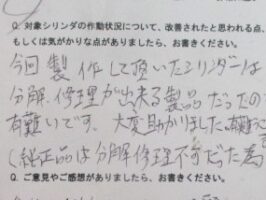 Q. 対象シリンダの作動状況について、改善されたと思われる点、
もしくは気がかりな点がありましたら、お書きください。
今回製作して頂いたシリンダーは
分解、修理が出来る製品だったので
有難いです、大変助かりました、有難う
(純正品は分解修理不可だった為
Q. ご意見やご感想がありましたら、お書きください。